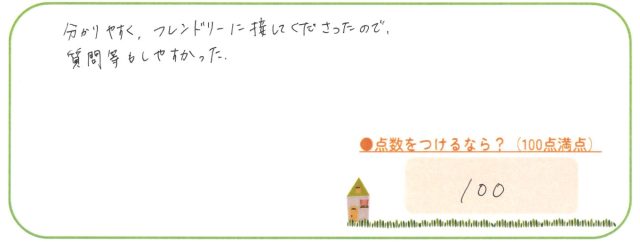 分かりやすく、フレンドリーに接してくださったので、
質問等もしやすかった.
●点数をつけるなら？（100点満点）
100